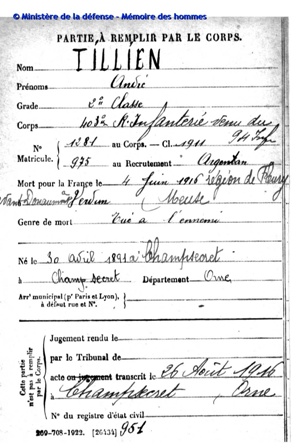 © Ministère de la défense - Mémoire des hommes
PARTIE À REMPLIR PAR LE CORPS.
Nom TILLIEN
Prénoms André
Grade 2e Classe
Corps 403e R. Infanterie venu du
94 Infie
N° 1281 au Corps. — Cl. 1911
Matricule. 975 au Recrutement Argentan
Mort pour la France le 4 Juin 1916 région de Fleury
Verdun Meuse
Genre de mort Tué à l'ennemi
Né le 30 avril 1891 à Champsecret
à Champsecret Département Orne
Arr' municipal (p' Paris et Lyon),
à défaut rue et N°.
Cette partie
n'est pas à remplir
par le Corps.
Jugement rendu le
par le Tribunal de
acte ou jugement transcrit le 26 Août 1916
à Champsecret Orne
N° du registre d'état civil
269-708-1922. [26434] 951